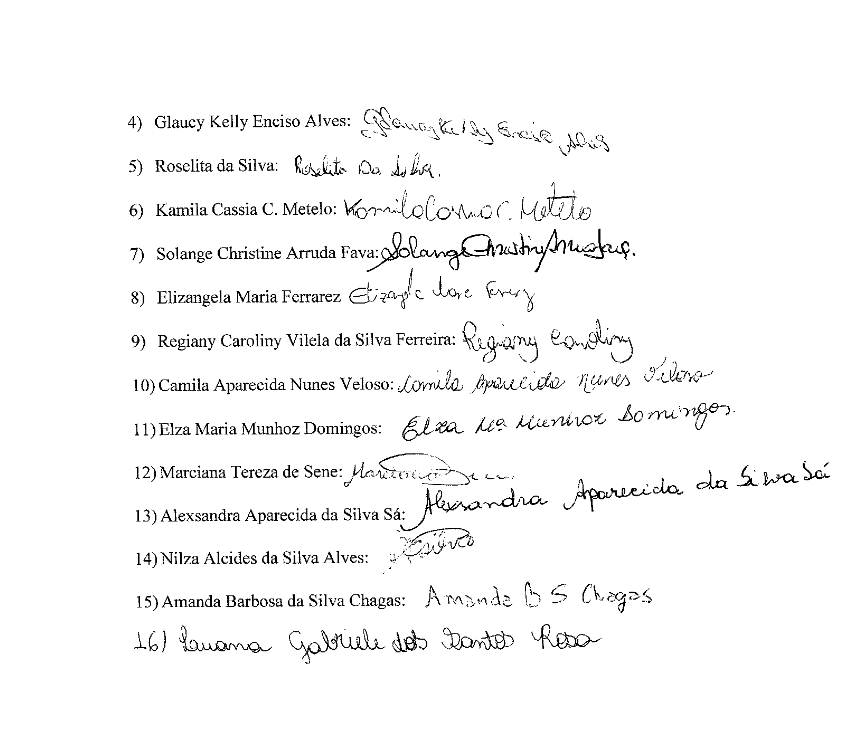 4) Glaucy Kelly Enciso Alves: Glaucy Kelly Enciso Alves
5) Roselita da Silva: Roselita Da Silva.
6) Kamila Cassia C. Metelo: Kamila Cassia C. Metelo
7) Solange Christine Arruda Fava: Solange Christine Arruda
8) Elizangela Maria Ferrarez
9) Regiany Caroliny Vilela da Silva Ferreira: Regiany Caroliny
10) Camila Aparecida Nunes Veloso: Camila Aparecida Nunes Veloso
11) Elza Maria Munhoz Domingos: Elza Mª Munhoz Domingos.
12) Marciana Tereza de Sene:
13) Alexsandra Aparecida da Silva Sá: Alexsandra Aparecida da Silva Sá
14) Nilza Alcides da Silva Alves:
15) Amanda Barbosa da Silva Chagas: Amanda B S Chagas
16) Luana Gabriele dos Santos Rosa